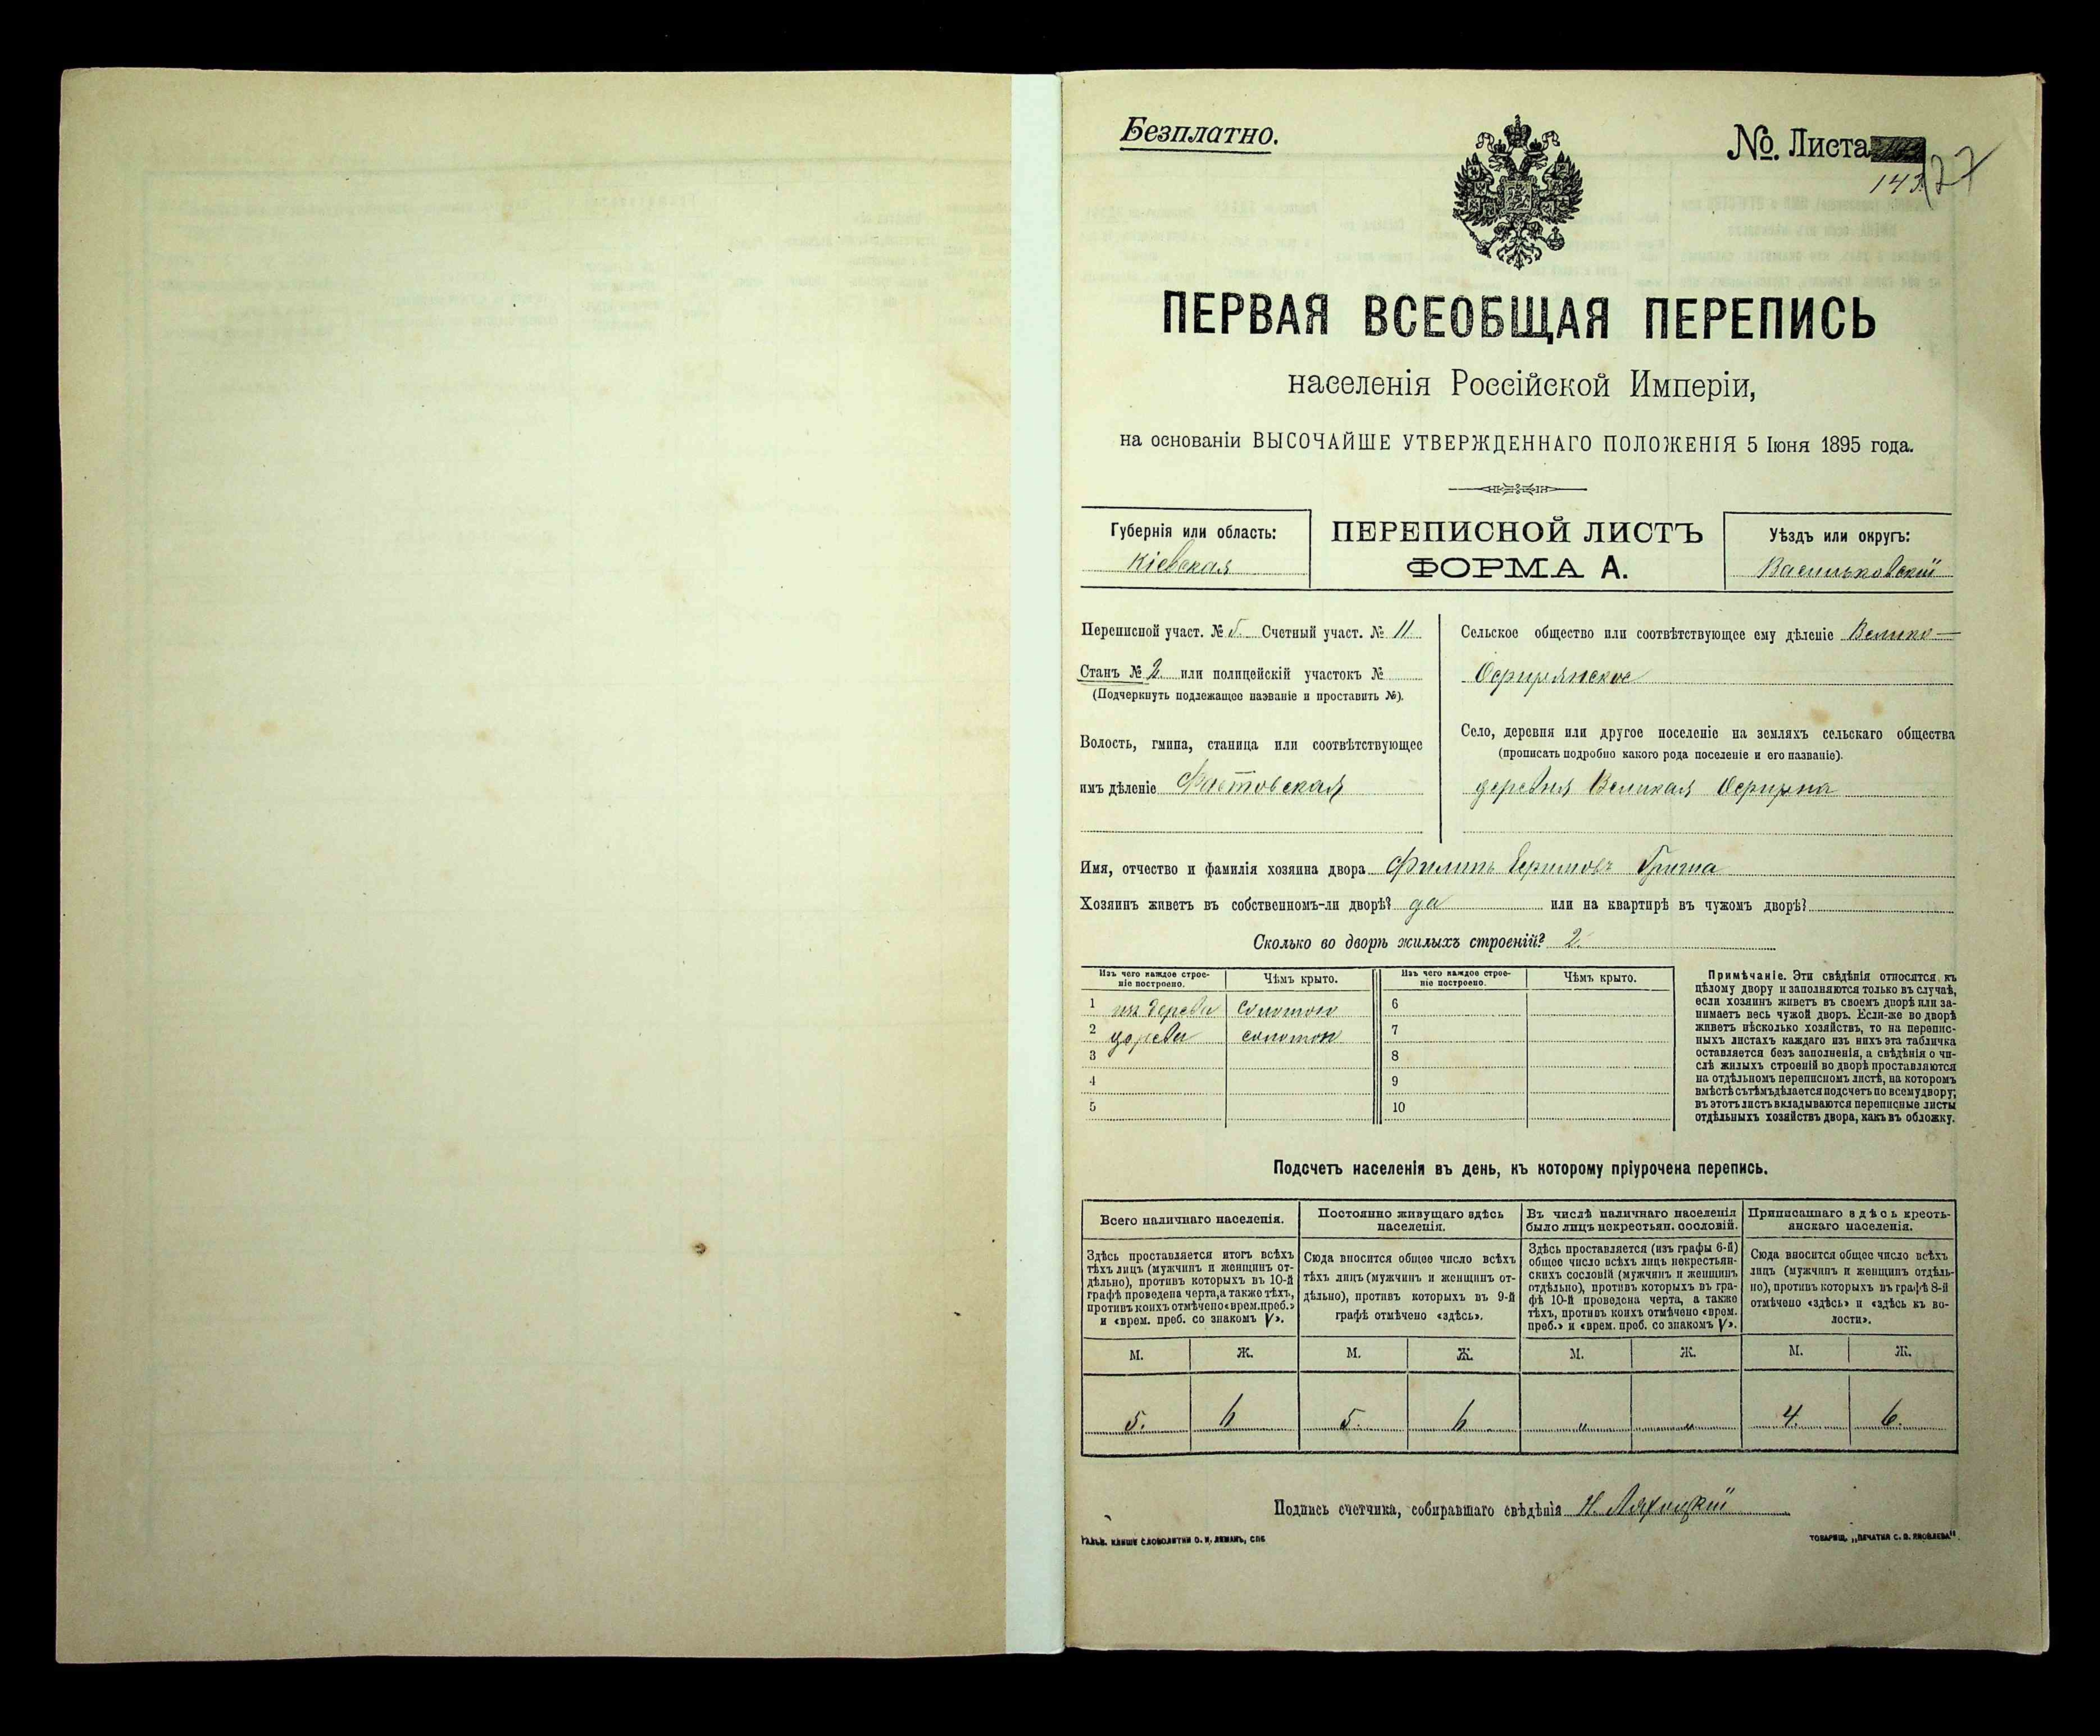 Безплатно.
№ Листа
143
ПЕРВАЯ ВСЕОБЩАЯ ПЕРЕПИСЬ
населенія Россійской Имперіи,
на основаніи ВЫСОЧАЙШЕ УТВЕРЖДЕННАГО ПОЛОЖЕНІЯ 5 Іюня 1895 года.
Губернія или область:
Кіевская
ПЕРЕПИСНОЙ ЛИСТЪ
ФОРМА А.
Уѣздъ или округъ:
Васильковскій
Переписной участ. № 5. Счетный участ. № 11
Станъ № 2. или полицейскій участокъ №
(Подчеркнуть подлежащее названіе и проставить №).
Волость, гмина, станица или соотвѣтствующее
имъ дѣленіе Фастовская
Сельское общество или соотвѣтствующее ему дѣленіе Велико-
Село, деревня или другое поселеніе на земляхъ сельскаго общества
(прописать подробно какого рода поселеніе и его названіе).
деревня Великая
Имя, отчество и фамилія хозяина двора Филипъ
Хозяинъ живетъ въ собственномъ-ли дворѣ? да или на квартирѣ въ чужомъ дворѣ?
Сколько во дворѣ жилыхъ строеній? 2.
Изъ чего каждое строе-
ніе построено.
Чѣмъ крыто.
Изъ чего каждое строе-
ніе построено.
Чѣмъ крыто.
1 изъ дерева соломою 6
2 дерева соломою 7
3 8
4 9
5 10
Примѣчаніе. Эти свѣдѣнія относятся къ
цѣлому двору и заполняются только въ случаѣ,
если хозяинъ живетъ въ своемъ дворѣ или за-
нимаетъ весь чужой дворъ. Если-же во дворѣ
живетъ нѣсколько хозяйствъ, то на перепис-
ныхъ листахъ каждаго изъ нихъ эта табличка
оставляется безъ заполненія, а свѣдѣнія о чи-
слѣ жилыхъ строеній во дворѣ проставляются
на отдѣльномъ переписномъ листѣ, на которомъ
вмѣстѣ съ тѣмъ дѣлается подсчетъ по всему двору;
въ этотъ листъ вкладываются переписные листы
отдѣльныхъ хозяйствъ двора, какъ въ обложку.
Подсчетъ населенія въ день, къ которому пріурочена перепись.
Всего наличнаго населенія.
Здѣсь проставляется итогъ всѣхъ
тѣхъ лицъ (мужчинъ и женщинъ от-
дѣльно), противъ которыхъ въ 10-й
графѣ проведена черта, а также тѣхъ,
противъ коихъ отмѣчено «врем. преб.»
и «врем. преб. со знакомъ V».
Постоянно живущаго здѣсь
населенія.
Сюда вносится общее число всѣхъ
тѣхъ лицъ (мужчинъ и женщинъ от-
дѣльно), противъ которыхъ въ 9-й
графѣ отмѣчено «здѣсь».
Въ числѣ наличнаго населенія
было лицъ некрестьян. сословій.
Здѣсь проставляется (изъ графы 6-й)
общее число всѣхъ лицъ некрестьян-
скихъ сословій (мужчинъ и женщинъ
отдѣльно), противъ которыхъ въ гра-
фѣ 10-й проведена черта, а также
тѣхъ, противъ коихъ отмѣчено «врем.
преб.» и «врем. преб. со знакомъ V».
Приписаннаго здѣсь кресть-
янскаго населенія.
Сюда вносится общее число всѣхъ
лицъ (мужчинъ и женщинъ отдѣль-
но), противъ которыхъ въ графѣ 8-й
отмѣчено «здѣсь» и «здѣсь къ во-
лости».
М. Ж. М. Ж. М. Ж. М. Ж.
5. 6 5. 6 " " 4. 6.
Подпись счетчика, собиравшаго свѣдѣнія Н.
ГАЛЬВ. КЛИШЕ СЛОВОЛИТНИ О. И. ЛЕМАНЪ, СПБ
ТОВАРИЩ. „ПЕЧАТНЯ С. П. ЯКОВЛЕВА".